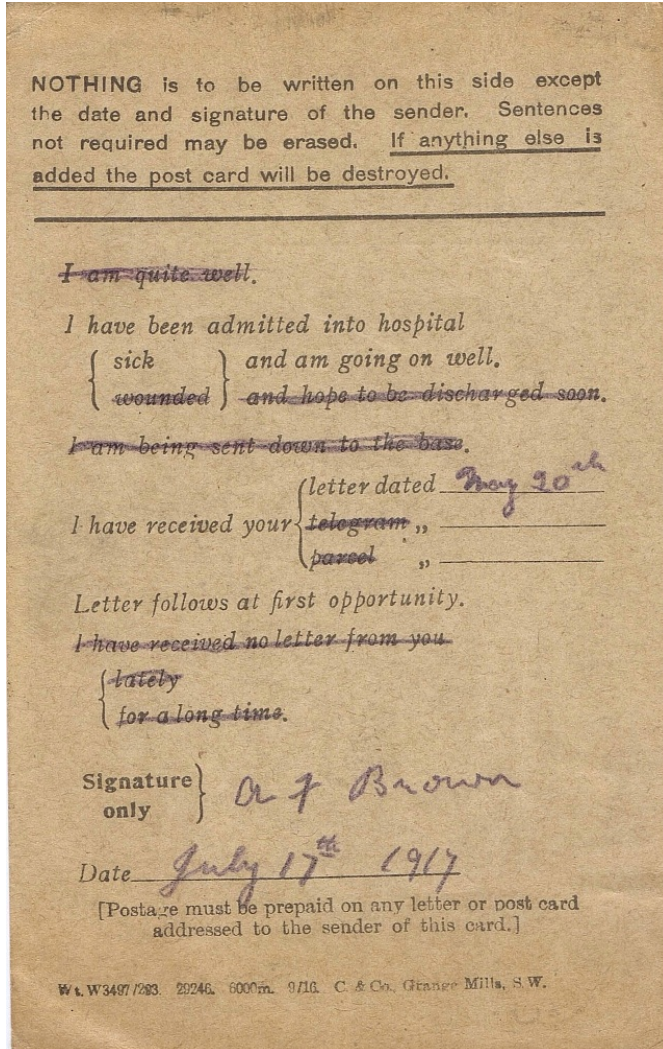 NOTHING is to be written on this side except
the date and signature of the sender. Sentences
not required may be erased. If anything else is
added the post card will be destroyed.
I am quite well.
I have been admitted into hospital
sick and am going on well.
wounded and hope to be discharged soon.
I am being sent down to the base.
letter dated May 20th
I have received your telegram „
parcel „
Letter follows at first opportunity.
I have received no letter from you
lately
for a long time.
Signature
only
A F Brown
Date July 17th 1917
[Postage must be prepaid on any letter or post card
addressed to the sender of this card.]
Wt. W3497/293. 29246. 6000m. 9/16. C. & Co., Grange Mills, S.W.